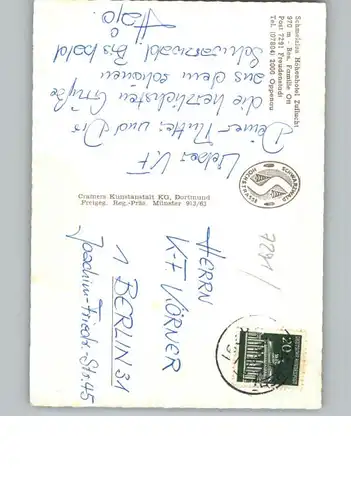 Schmelzles Höhenhotel Zuflucht
970 m - Bes. Familie Ott
Post 7291 Freudenstadt
Tel. (07804) 2000 Oppenau
Lieber K-F
Deiner Mutter und Dir
die herzlichsten Grüße
aus dem schönen
Schwarzwald Bis bald
SCHWARZWALD
HOCHSTRASSE
Cramers Kunstanstalt KG, Dortmund
Freigeg. Reg.-Präs. Münster 912/61
7291
20
HERRN
K-F. KÖRNER
1 BERLIN 31
Joachim-Friedr.-Str. 45